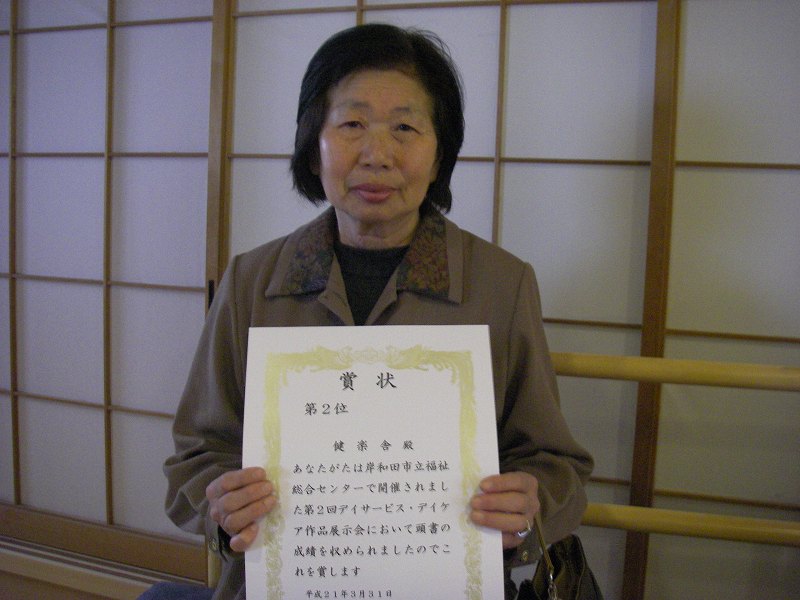 賞状
第２位
健楽舎殿
あなたがたは岸和田市立福祉
総合センターで開催されまし
た第２回デイサービス・デイケ
ア作品展示会において頭書の
成績を収められましたのでこ
れを賞します
平成２１年３月３１日